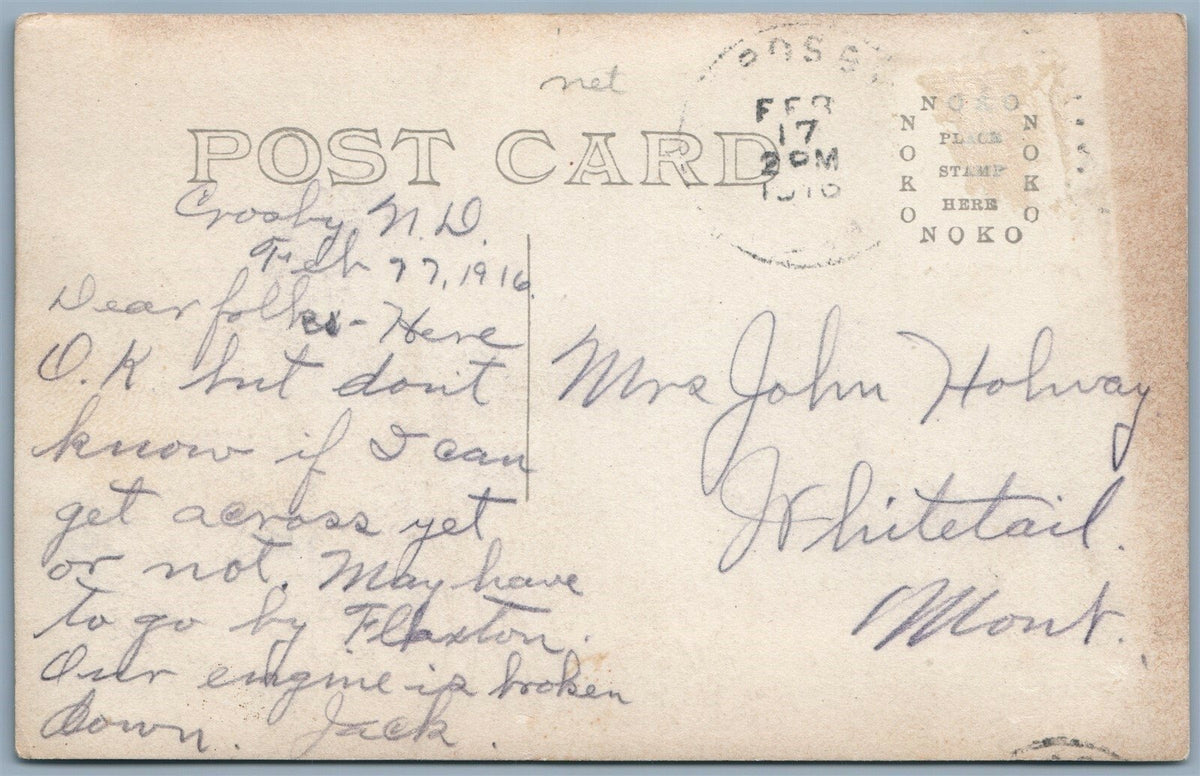 net
POST CARD
FEB
17
2 PM
1916
NOKO
NOKO
NOKO
NOKO
PLACE
STAMP
HERE
Crosby, N.D.
Feb 17, 1916.
Dear folks - Here
O.K but don't
know if I can
get across yet
or not. May have
to go by Flaxton.
Our engine is broken
down. Jack.
Mrs John Holway
Whitetail.
Mont.